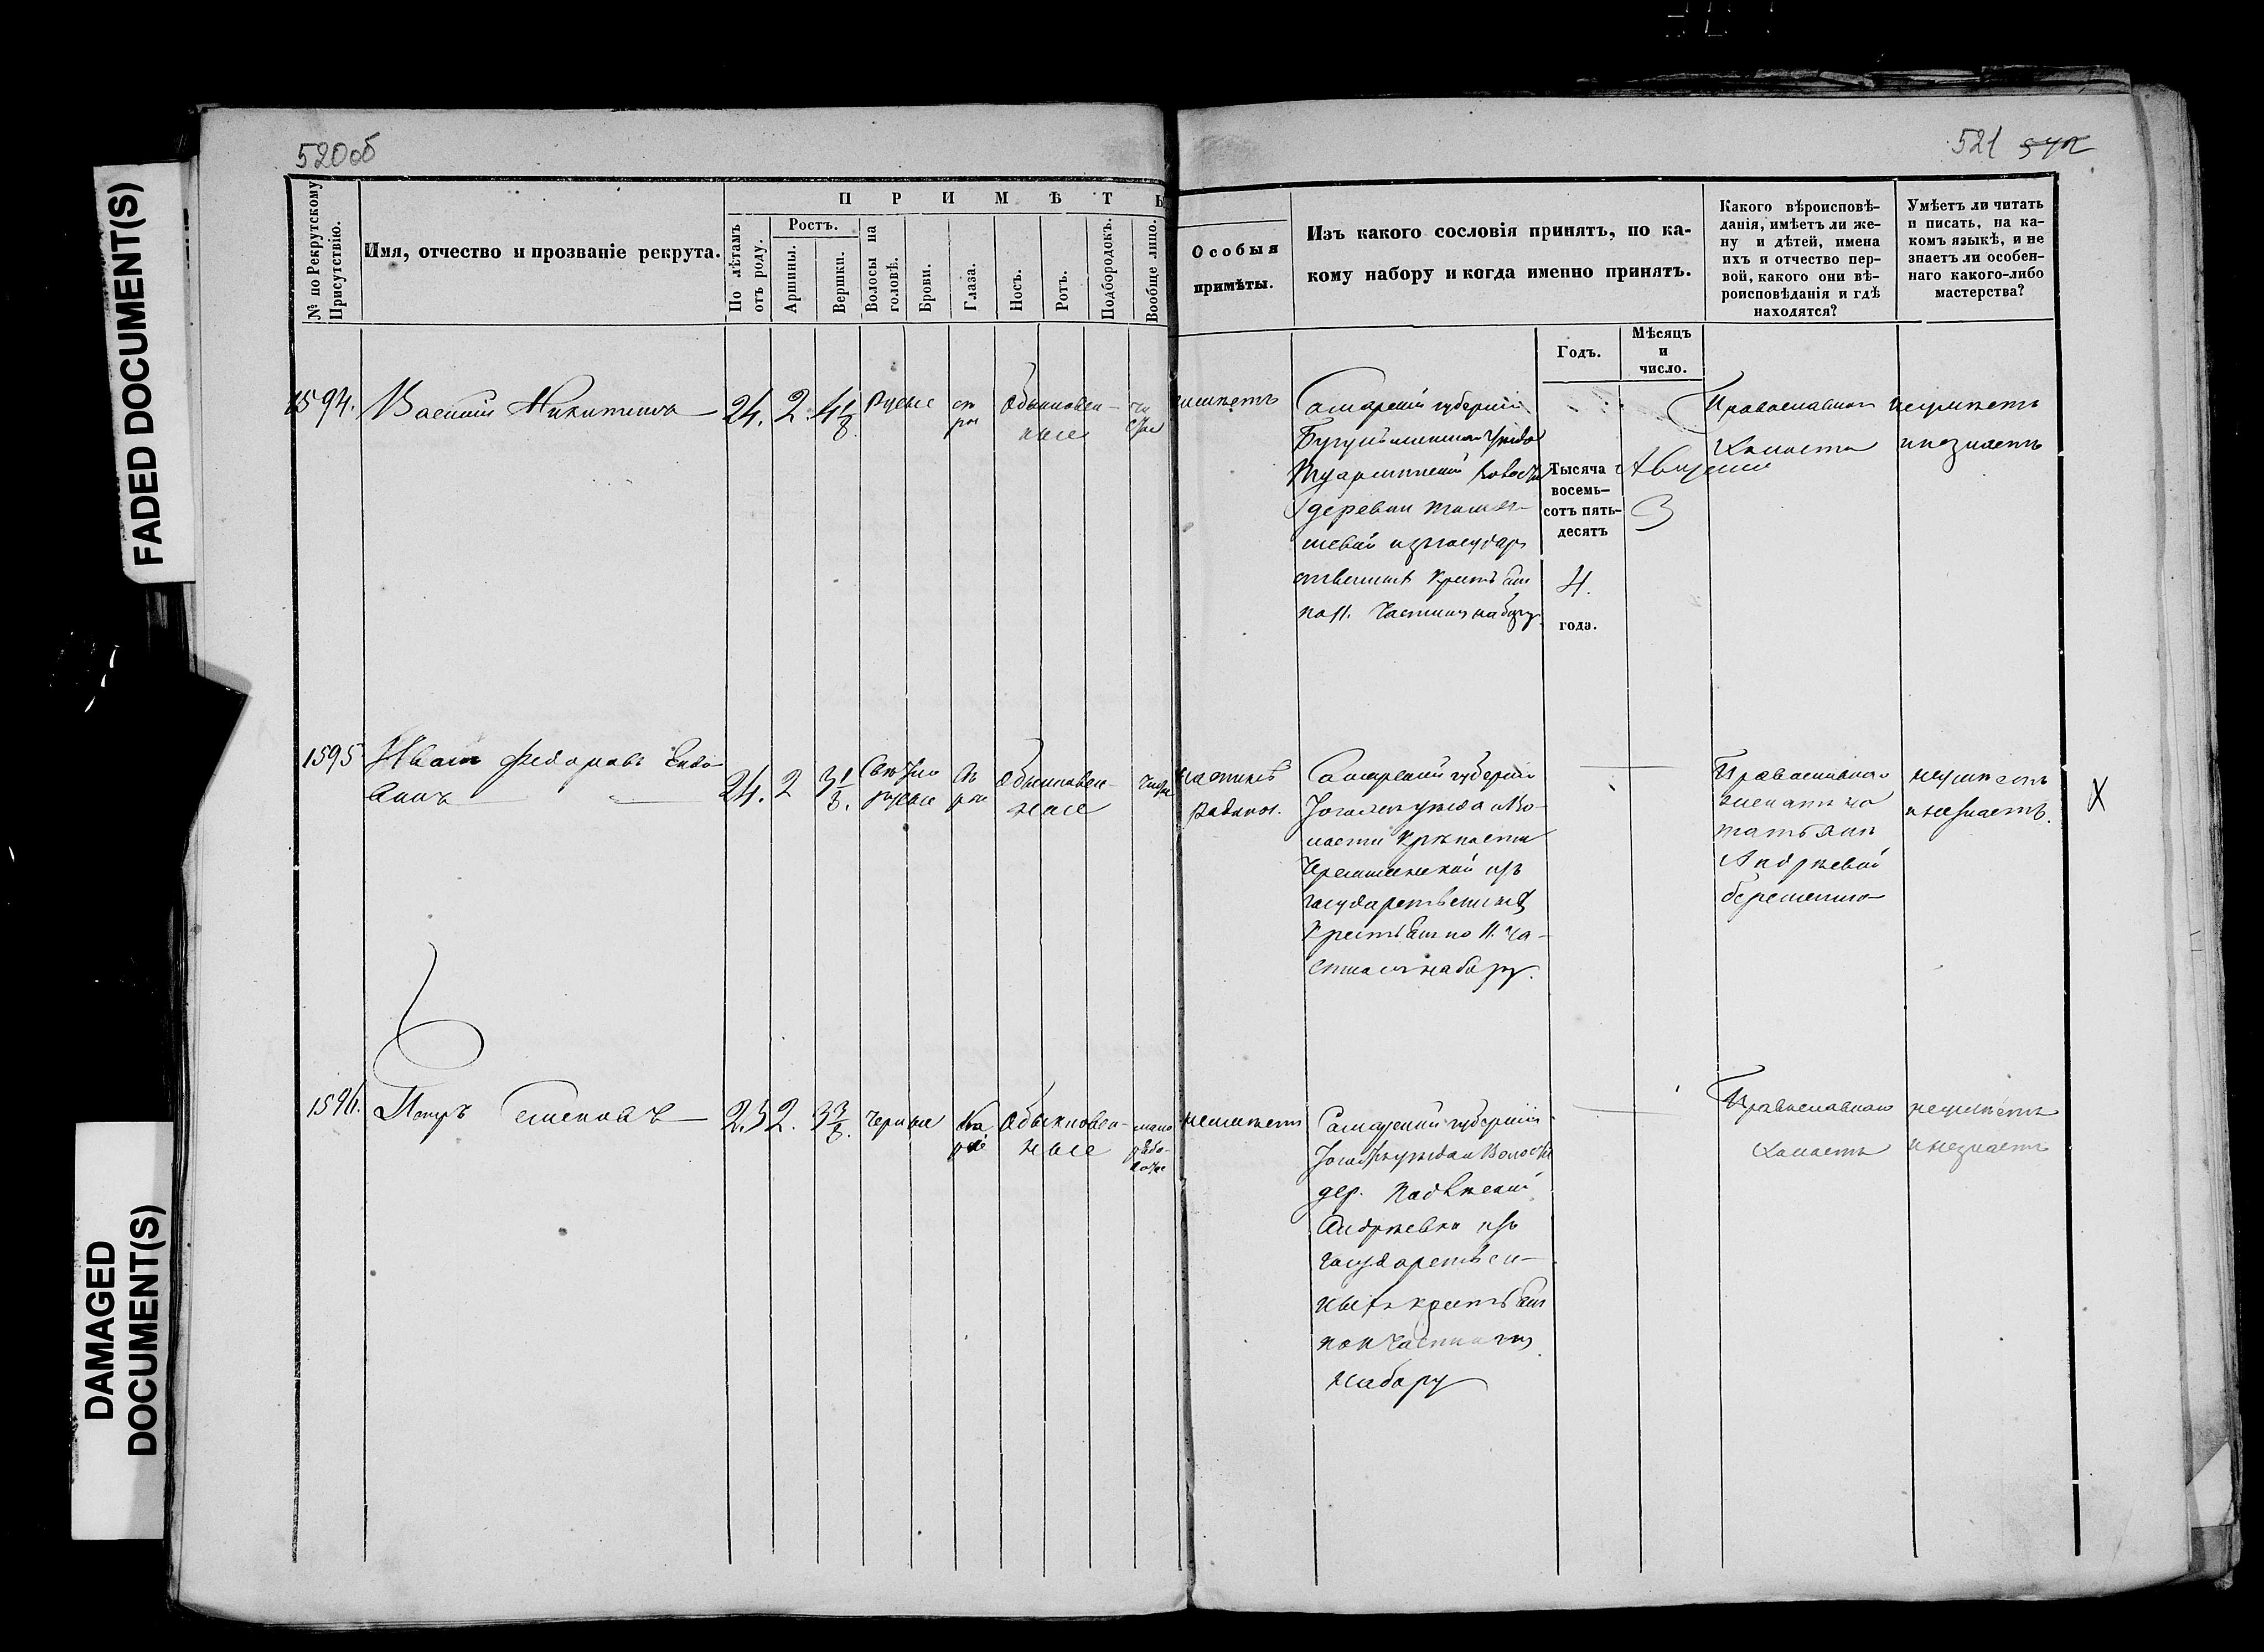 FADED DOCUMENT(S)
DAMAGED
DOCUMENT(S)
520об
521 542
№ по Рекрутскому
Присутствію.
Имя, отчество и прозваніе рекрута.
ПРИМѢТЫ
По лѣтамъ
отъ роду.
Ростъ.
Аршины.
Вершки.
Волосы на
головѣ.
Брови.
Глаза.
Носъ.
Ротъ.
Подбородокъ.
Вообще лицо.
Особыя
примѣты.
Изъ какого сословія принятъ, по ка-
кому набору и когда именно принятъ.
Какого вѣроисповѣ-
данія, имѣетъ ли же-
ну и дѣтей, имена
ихъ и отчество пер-
вой, какого они вѣ-
роисповѣданія и гдѣ
находятся?
Умѣетъ ли читать
и писать, на ка-
комъ языкѣ, и не
знаетъ ли особен-
наго какого-либо
мастерства?
Годъ.
Мѣсяцъ
и
число.
1594.
Василій Никитинъ
24.
2.
4 1/8.
Русые
сѣ
рые
Обыкновен-
ные
чи
стое
неимѣетъ
Самарской губерніи
Бугульминскаго уѣзда
волости
деревни
изъ государ
ственныхъ крестьян
по 11. частному набору
Тысяча
восемь-
сотъ пять-
десятъ
4.
года.
Августа
3
Православнаго
холостъ
неумѣетъ
и незнаетъ
1595
Иванъ Федоровъ
24.
2
3 1/8.
Свѣтло
русые
Сѣ
рые
Обыкновен-
ные
чистое
Самарской губерніи
уѣзда и во-
лости крѣпости
Черемшанской изъ
государственныхъ
крестьян по 11. ча-
стному набору.
Православнаго
женатъ на
Татьянѣ
Андреевой
беременна
неумѣетъ
и незнаетъ.
X
1596.
Петръ Семеновъ
25
2.
3 3/8.
черные
Ка
ріе
Обыкновен-
ные
неимѣетъ
Самарской губерніи
уѣзда и волости
дер.
Андреевки изъ
государствен-
ныхъ крестьян
по 11 частному
набору
Православнаго
холостъ
неумѣетъ
и незнаетъ